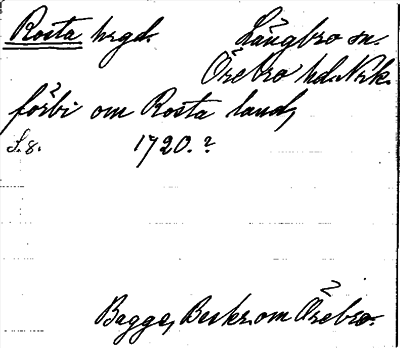 Rosta hrgd. Längbro sn.
Örebro hd. Nrk.
förbi om Rosta land,
S. 8. 1720.?
Bagge, Beskr. om Örebro.